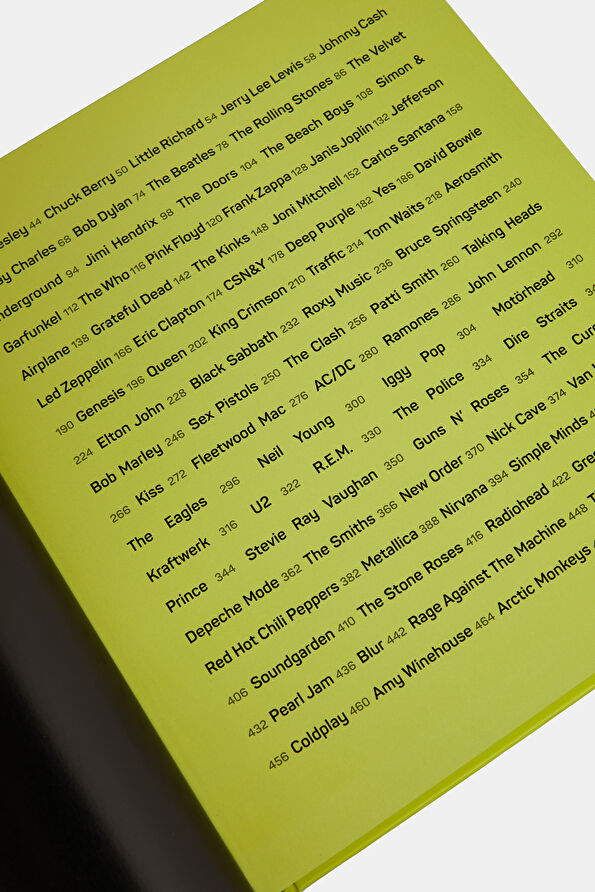 esley 44 Chuck Berry 50 Little Richard 54 Jerry Lee Lewis 58 Johnny Cash
y Charles 68 Bob Dylan 74 The Beatles 78 The Rolling Stones 86 The Velvet
nderground 94 Jimi Hendrix 98 The Doors 104 The Beach Boys 108 Simon &
Garfunkel 112 The Who 116 Pink Floyd 120 Frank Zappa 128 Janis Joplin 132 Jefferson
Airplane 138 Grateful Dead 142 The Kinks 148 Joni Mitchell 152 Carlos Santana 158
Led Zeppelin 166 Eric Clapton 174 CSN&Y 178 Deep Purple 182 Yes 186 David Bowie
190 Genesis 196 Queen 202 King Crimson 210 Traffic 214 Tom Waits 218 Aerosmith
224 Elton John 228 Black Sabbath 232 Roxy Music 236 Bruce Springsteen 240
Bob Marley 246 Sex Pistols 250 The Clash 256 Patti Smith 260 Talking Heads
266 Kiss 272 Fleetwood Mac 276 AC/DC 280 Ramones 286 John Lennon 292
The Eagles 296 Neil Young 300 Iggy Pop 304 Motörhead 310
Kraftwerk 316 U2 322 R.E.M. 330 The Police 334 Dire Straits
Prince 344 Stevie Ray Vaughan 350 Guns N' Roses 354 The Cure
Depeche Mode 362 The Smiths 366 New Order 370 Nick Cave 374 Van
Red Hot Chili Peppers 382 Metallica 388 Nirvana 394 Simple Minds
406 Soundgarden 410 The Stone Roses 416 Radiohead 422 Gree
432 Pearl Jam 436 Blur 442 Rage Against The Machine 448
456 Coldplay 460 Amy Winehouse 464 Arctic Monkeys